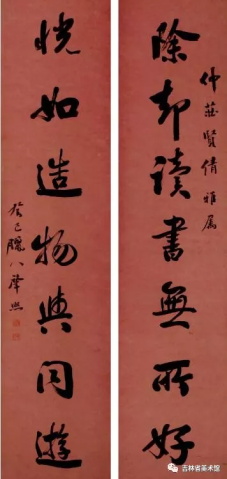 仲莊賢倩雅属
除却讀書無所好
恍如造物與同遊
癸巳臘八
吉林省美术馆